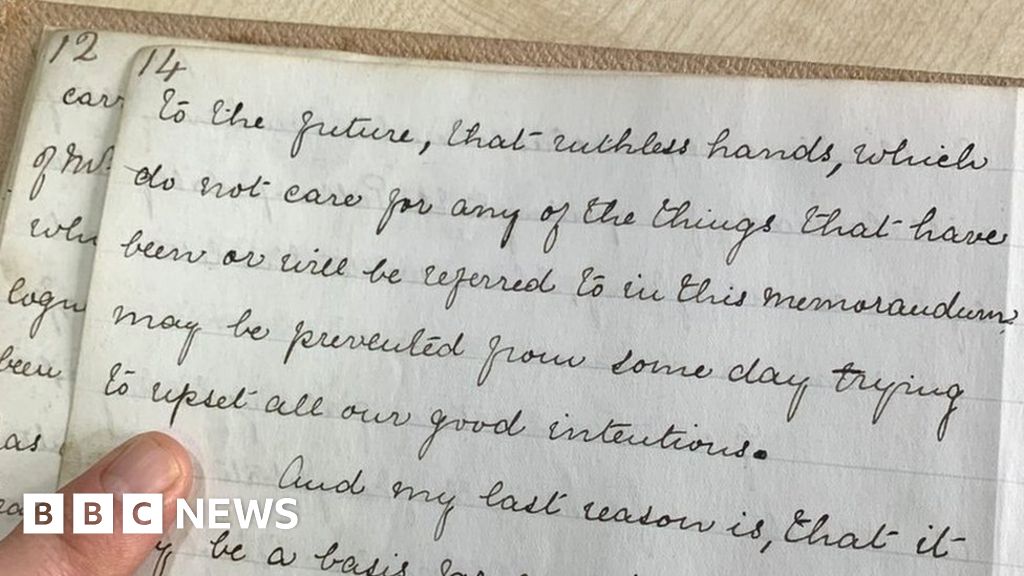 12
carr
of Mrs
whi
logu
been
as
14
to the future, that ruthless hands, which
do not care for any of the things that have
been or will be referred to in this memorandum
may be prevented from some day trying
to upset all our good intentions.
And my last reason is, that it
be a basis for
BBC NEWS